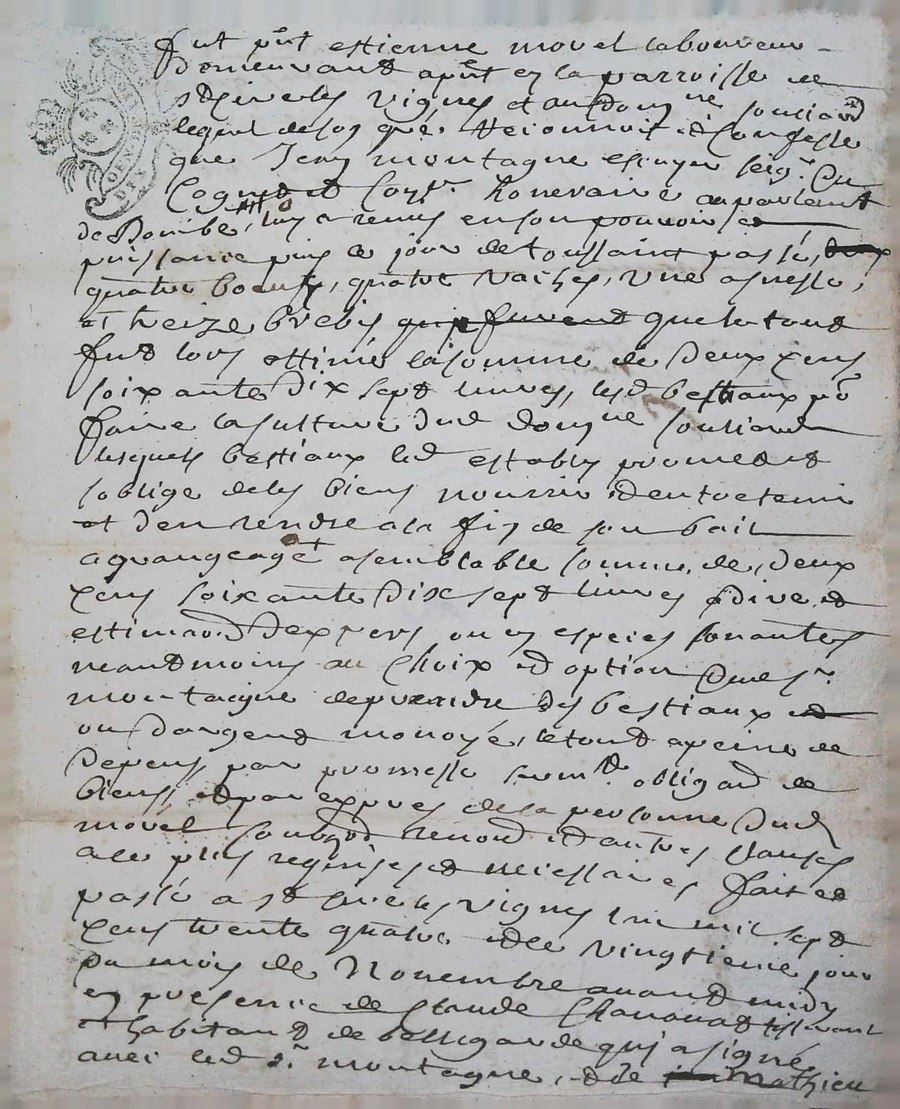 fut pnt estienne morel laboureur
demeurand apnt en la parroisse de
st cire les vignes et au domne souliard
lequel de son gré recionnoit et confesse
que Jean montagne escuyer seigr du
Cognet et Cons.r honoraire au parlement
de Dombe, luy a remis en son pouvoir et
puissance puis le jour de toussaint passé,
quatre boeufs, quatre vaches, une asnesse,
et treize brebis qui furent que le tout
fut lors estimé la somme de deux cens
soixante dix sept livres, lesd bestiaux pr
faire la culture dud domne souliard
lesquels bestiaux led estably promet et
soblige de les biens nourrir et entretenir
et den rendre a la fin de son bail
a grangeage a semblable somme de deux
cens soixante dix sept livres a dire et
estimaon dexpers, ou en especes sonantes
neantmoins au choix et option dud sr
montagne de prendre des bestiaux et
ou dargent monoyé, le tout a peine de
depens par promesse sermt obligaon de
biens, et par exprés de la personne dud
morel renon et autres clauses
a ce plus requises et neiessaires fait et
passé a st cire les vignes l'an mil sept
cens trente quatre et le vingtieme jour
du mois de Novembre avand midy
en presence de Claude tisserant
et habitand de bellegarde qui a signé
avec led sr. montagne, et de mathieu